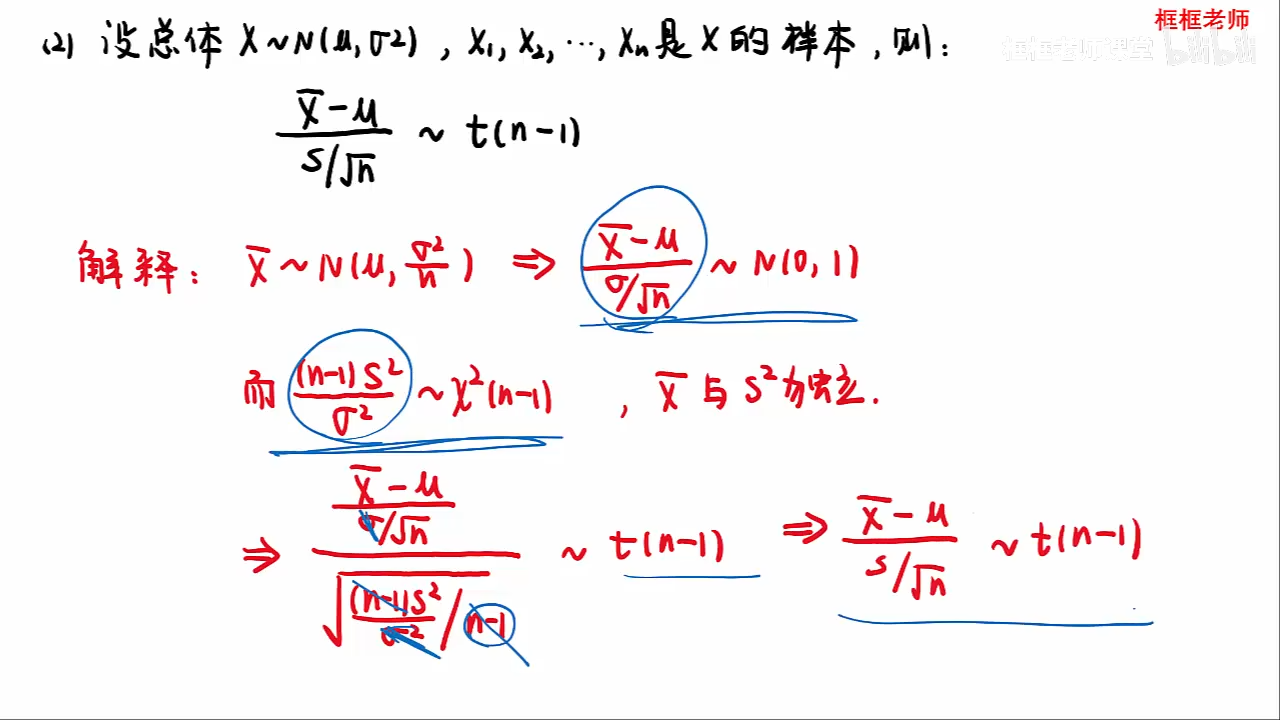 框框老师
框框老师课堂 bilibili
(2) 设总体 X~N(μ, σ2), X₁, X₂, …, Xn是X的样本, 则:
(X̄-μ)/(S/√n) ~ t(n-1)
解释: X̄~N(μ, σ²/n) ⇒ (X̄-μ)/(σ/√n) ~ N(0,1)
而 (n-1)S²/σ² ~ χ²(n-1) , X̄ 与 S² 独立.
⇒ ((X̄-μ)/(σ/√n))/√((n-1)S²/σ²/n-1) ~ t(n-1) ⇒ (X̄-μ)/(S/√n) ~ t(n-1)